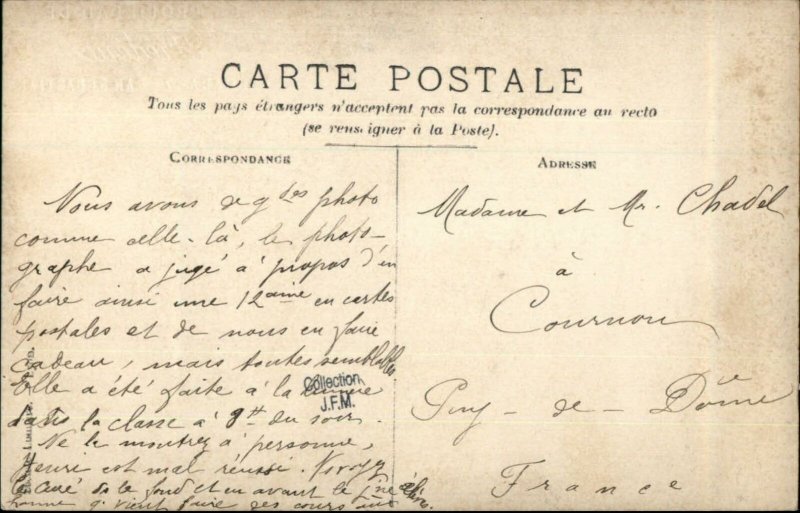 CARTE POSTALE
Tous les pays étrangers n'acceptent pas la correspondance au recto
(se renseigner à la Poste).
CORRESPONDANCE
ADRESSE
Nous avons de gdes photo
comme celle-là, le photo-
graphe a jugé à propos d'en
faire ainsi une 12aine en cartes
postales et de nous en faire
cadeau, mais toutes semblables
Elle a été faite à la lumière
dans la classe à 8 du soir.
Ne le montrez à personne,
Henri est mal réussi. Voyez
le curé dans le fond et en avant le jne
homme qi vient faire des cours aux
élèves.
Collection
J.F.M.
Madame et Mr. Chadel
à
Cournon
Puy-de-Dôme
France